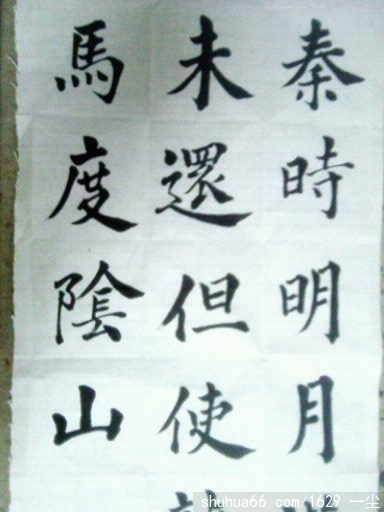 秦時明月
未還但使
馬度陰山
shuhua66.com/1629 一尘